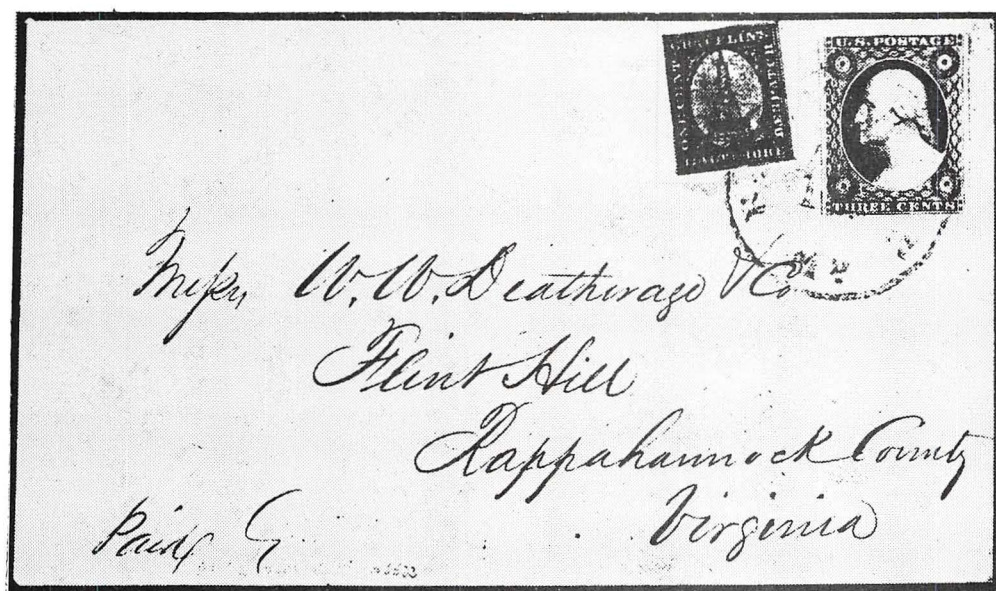 GRAFFLIN'S
ONE CENT
DESPATCH
BALTIMORE
U.S. POSTAGE
THREE CENTS
Messrs W. W. Deatherage & Co
Flint Hill
Rappahannock County
Virginia
Paid